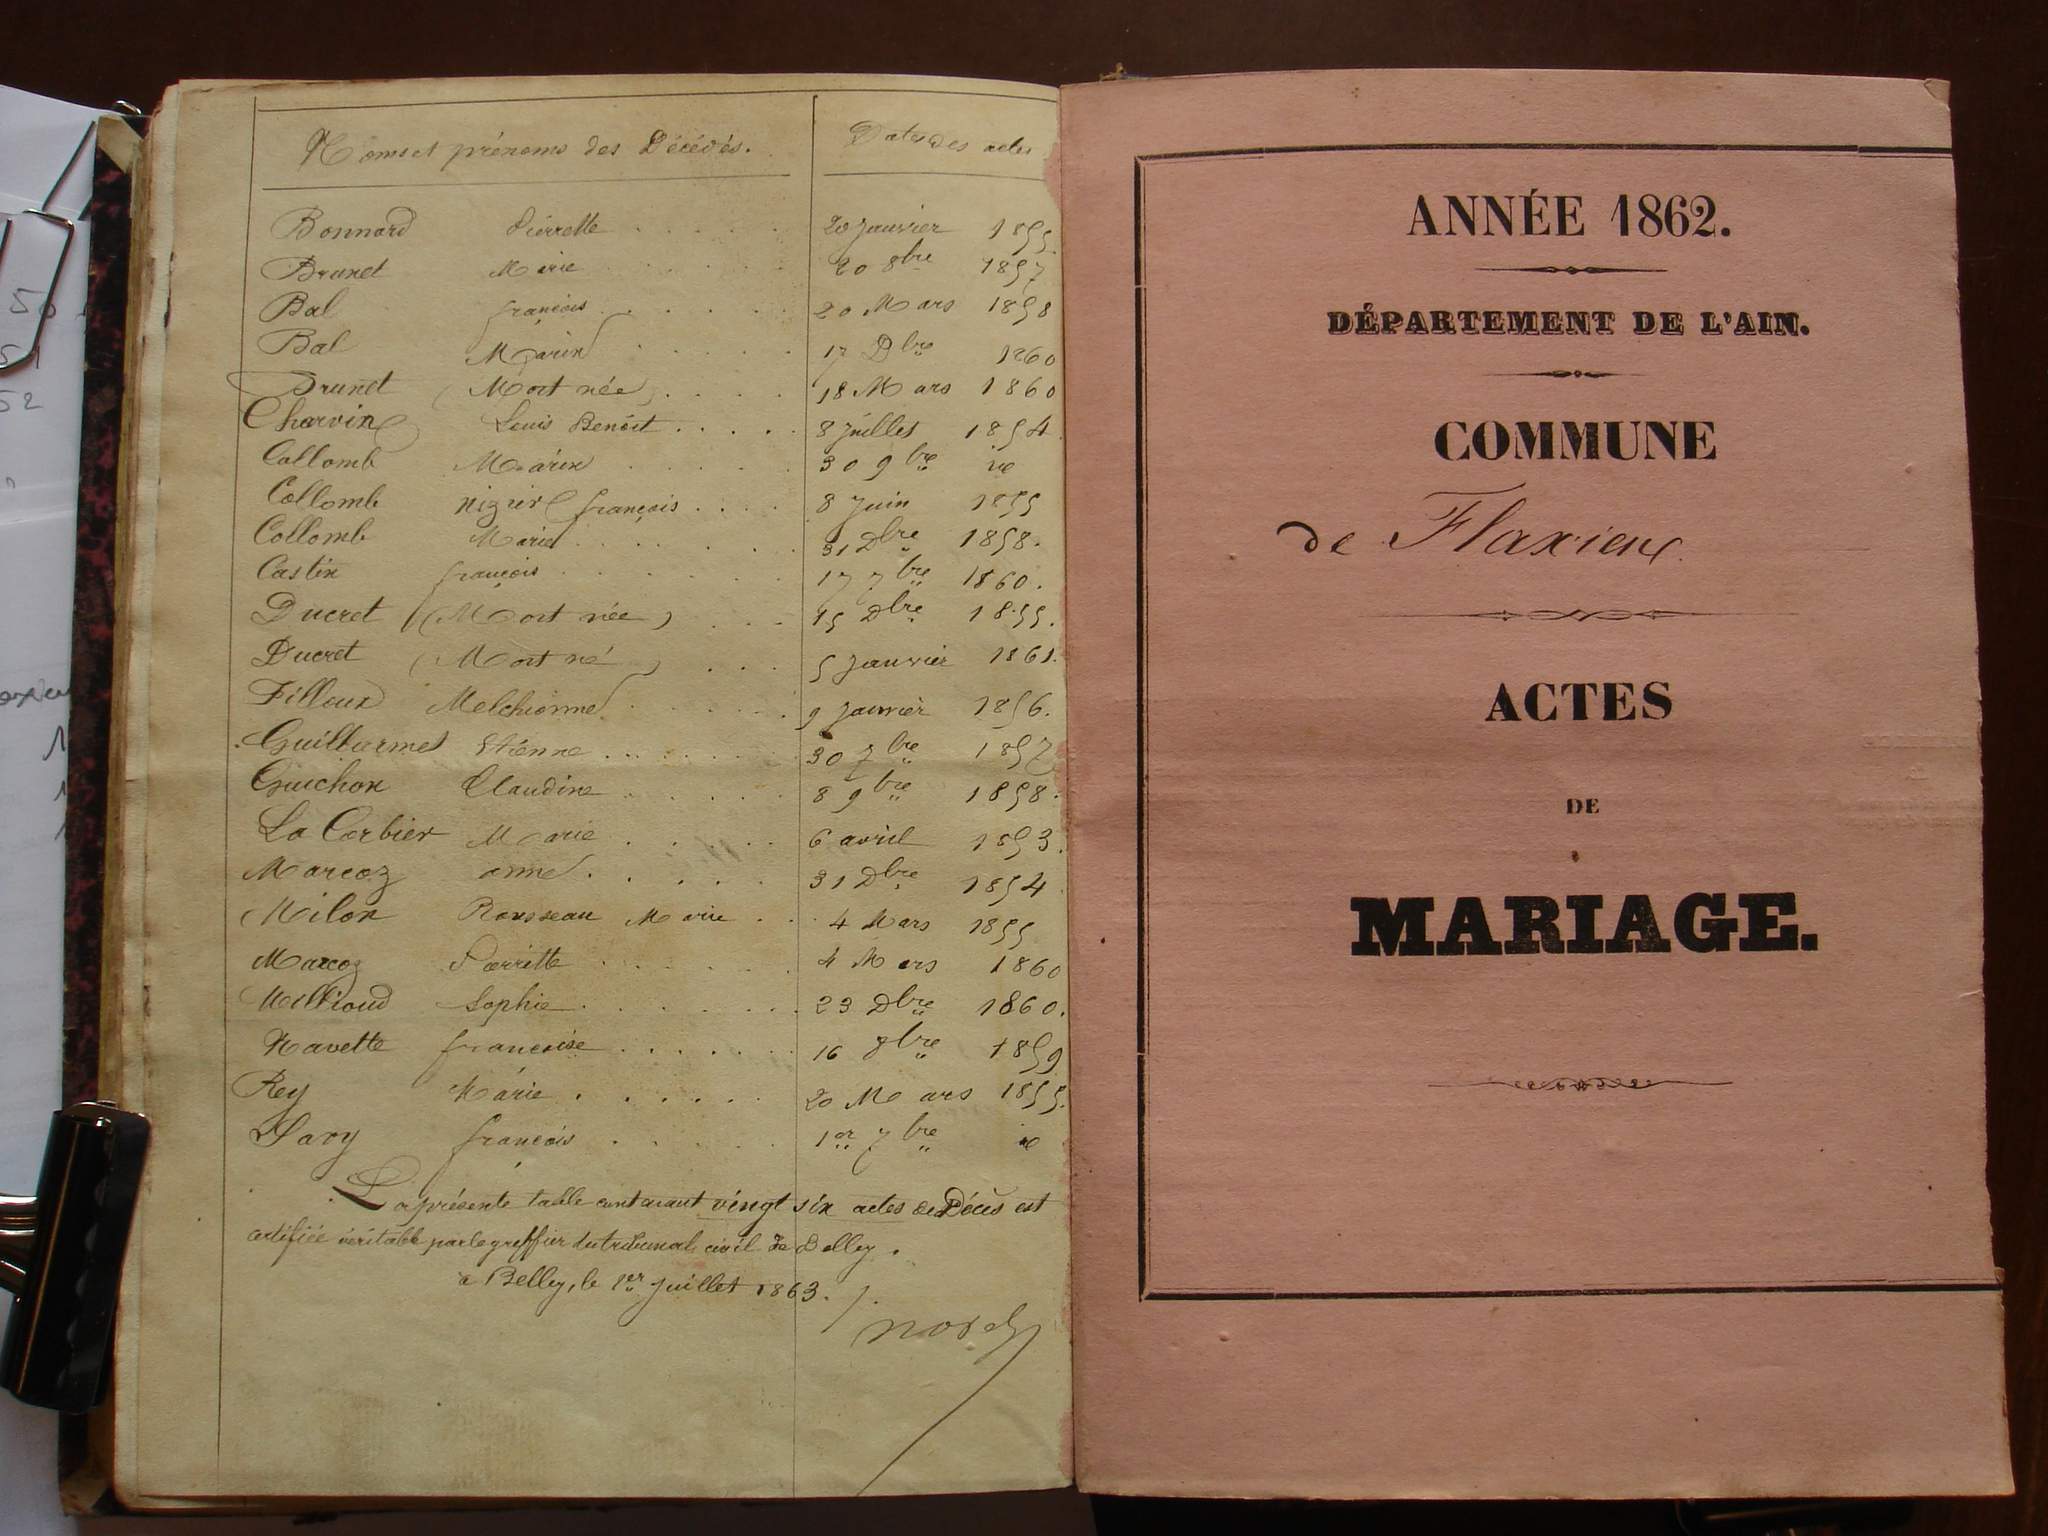 Noms et prénoms des Décédés. Dates des actes
Bonnard Pierrette 20 Janvier 1855.
Brunet Marie 20 8bre 1857
Bal françois 20 Mars 1858
Bal Marie 17 Dbre 1860
Brunet (Mort née) 18 Mars 1860
Charvin Louis Benoit 8 Juillet 1854
Collomb Marie 30 9bre id
Collomb nizier françois 8 Juin 1855
Collomb Marie 31 Dbre 1858.
Castin françois 17 7bre 1860.
Ducret (Mort née) 15 Dbre 1855.
Ducret (Mort né) 5 Janvier 1861.
Filloux Melchionne 9 Janvier 1856.
Guillarmet Etienne 30 7bre 1857
Guichon Claudine 8 9bre 1858.
La Corbier Marie 6 avril 1853.
Marcoz anne 31 Dbre 1854
Milon Rousseau Marie 4 Mars 1855
Marcoz Pierrette 4 Mars 1860
Millioud Sophie 23 Dbre 1860.
Navette françoise 16 8bre 1859
Rey Marie 20 Mars 1855.
Savy françois 1er 7bre id
La présente table contenant vingt six actes de Décès est
certifiée véritable par le greffier du tribunal civil de Belley.
a Belley, le 1er Juillet 1863.
ANNÉE 1862.
DÉPARTEMENT DE L'AIN.
COMMUNE
de Flaxieu
ACTES
DE
MARIAGE.
50
51
52